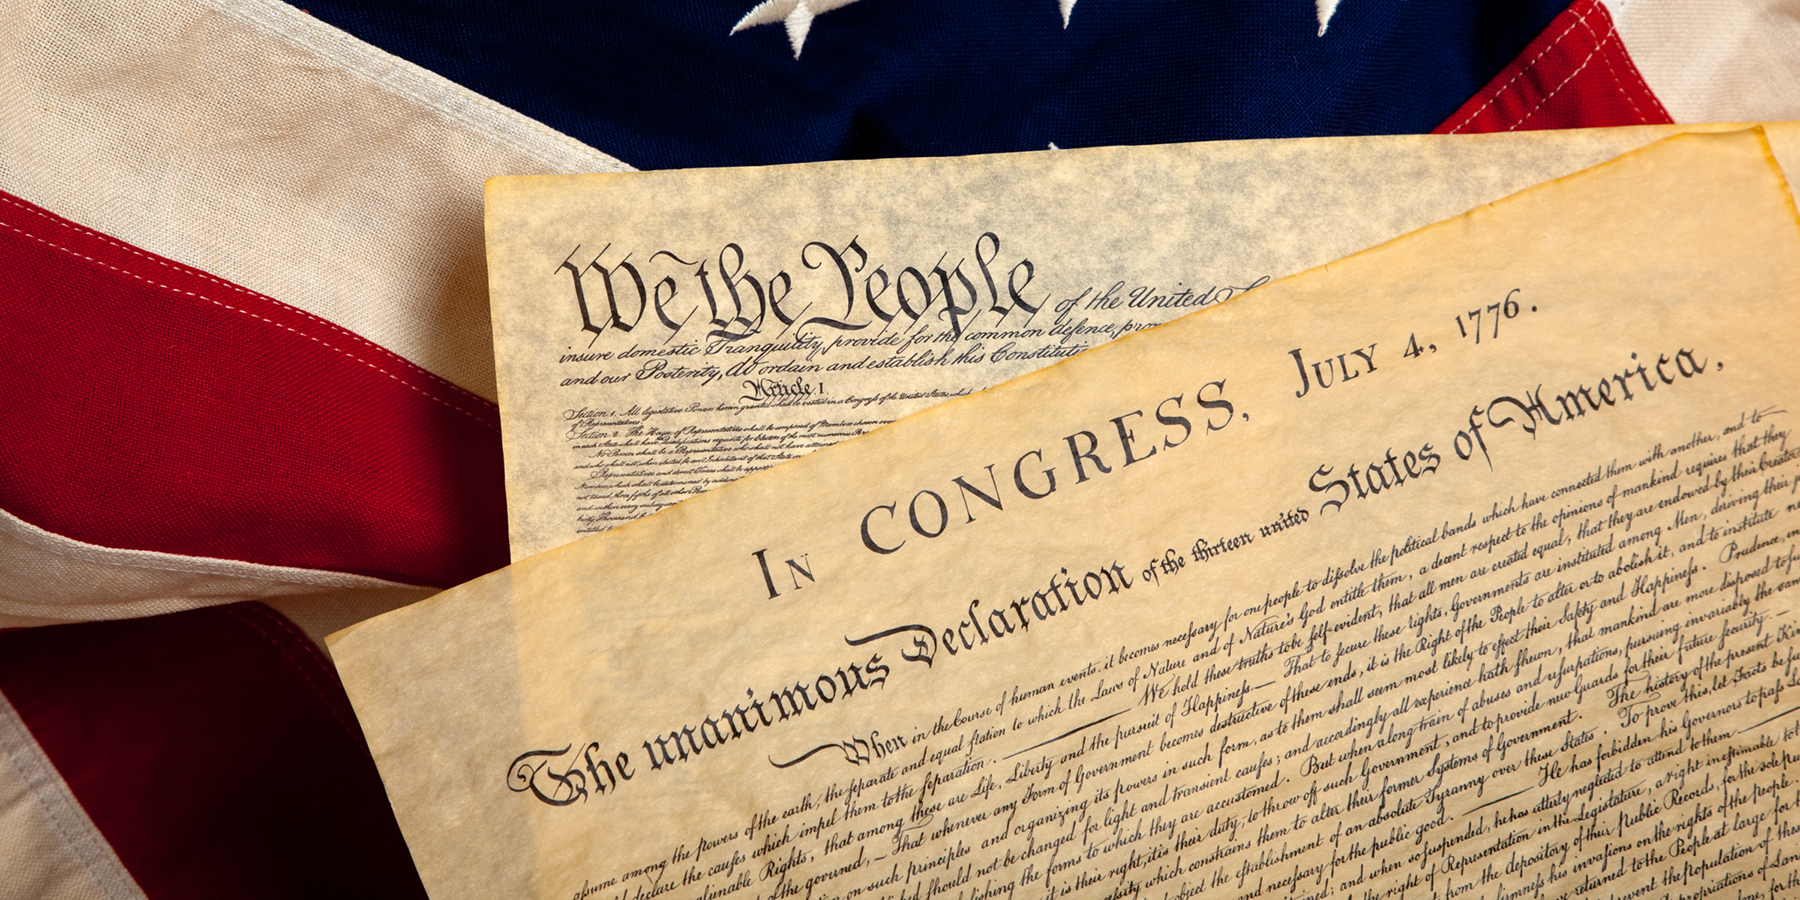 We the People of the United
insure domestic Tranquility, provide for the common defence, pro
and our Posterity, do ordain and establish this Constituti
Article. I.
Section. 1. All legislative Powers herein granted shall be vested in a Congress of the United States, which
of Representatives.
Section. 2. The House of Representatives shall be composed of Members chosen every
in each State shall have Qualifications requisite for Electors of the most numerous Br
No Person shall be a Representative who shall not have attained
and who shall not, when elected, be an Inhabitant of that State in
Representatives and direct Taxes shall be appor
In CONGRESS, July 4, 1776.
The unanimous Declaration of the thirteen united States of America.
When in the Course of human events, it becomes necessary for one people to dissolve the political bands which have connected them with another, and to
assume among the powers of the earth, the separate and equal station to which the Laws of Nature and of Nature's God entitle them, a decent respect to the opinions of mankind requires that they
declare the causes which impel them to the separation. — We hold these truths to be self-evident, that all men are created equal, that they are endowed by their Creator
alienable Rights, that among these are Life, Liberty and the pursuit of Happiness.— That to secure these rights, Governments are instituted among Men, deriving their
of the governed, — That whenever any Form of Government becomes destructive of these ends, it is the Right of the People to alter or to abolish it, and to institute ne
on such principles and organizing its powers in such form, as to them shall seem most likely to effect their Safety and Happiness. Prudence, in
should not be changed for light and transient causes; and accordingly all experience hath shewn, that mankind are more disposed to suf
lishing the forms to which they are accustomed. But when a long train of abuses and usurpations, pursuing invariably the same
it is their right, it is their duty, to throw off such Government, and to provide new Guards for their future security. —
which constrains them to alter their former Systems of Government. The history of the present Kin
object the establishment of an absolute Tyranny over these States. To prove this, let Facts be su
and necessary for the public good. — He has forbidden his Governors to pass La
and when so suspended, he has utterly neglected to attend to them —
the right of Representation in the Legislature, a right inestimable to
from the depository of their Public Records, for the sole pur
his invasions on the rights of the people.
returned to the People at large for
prevent the population of these
propriations of Lan